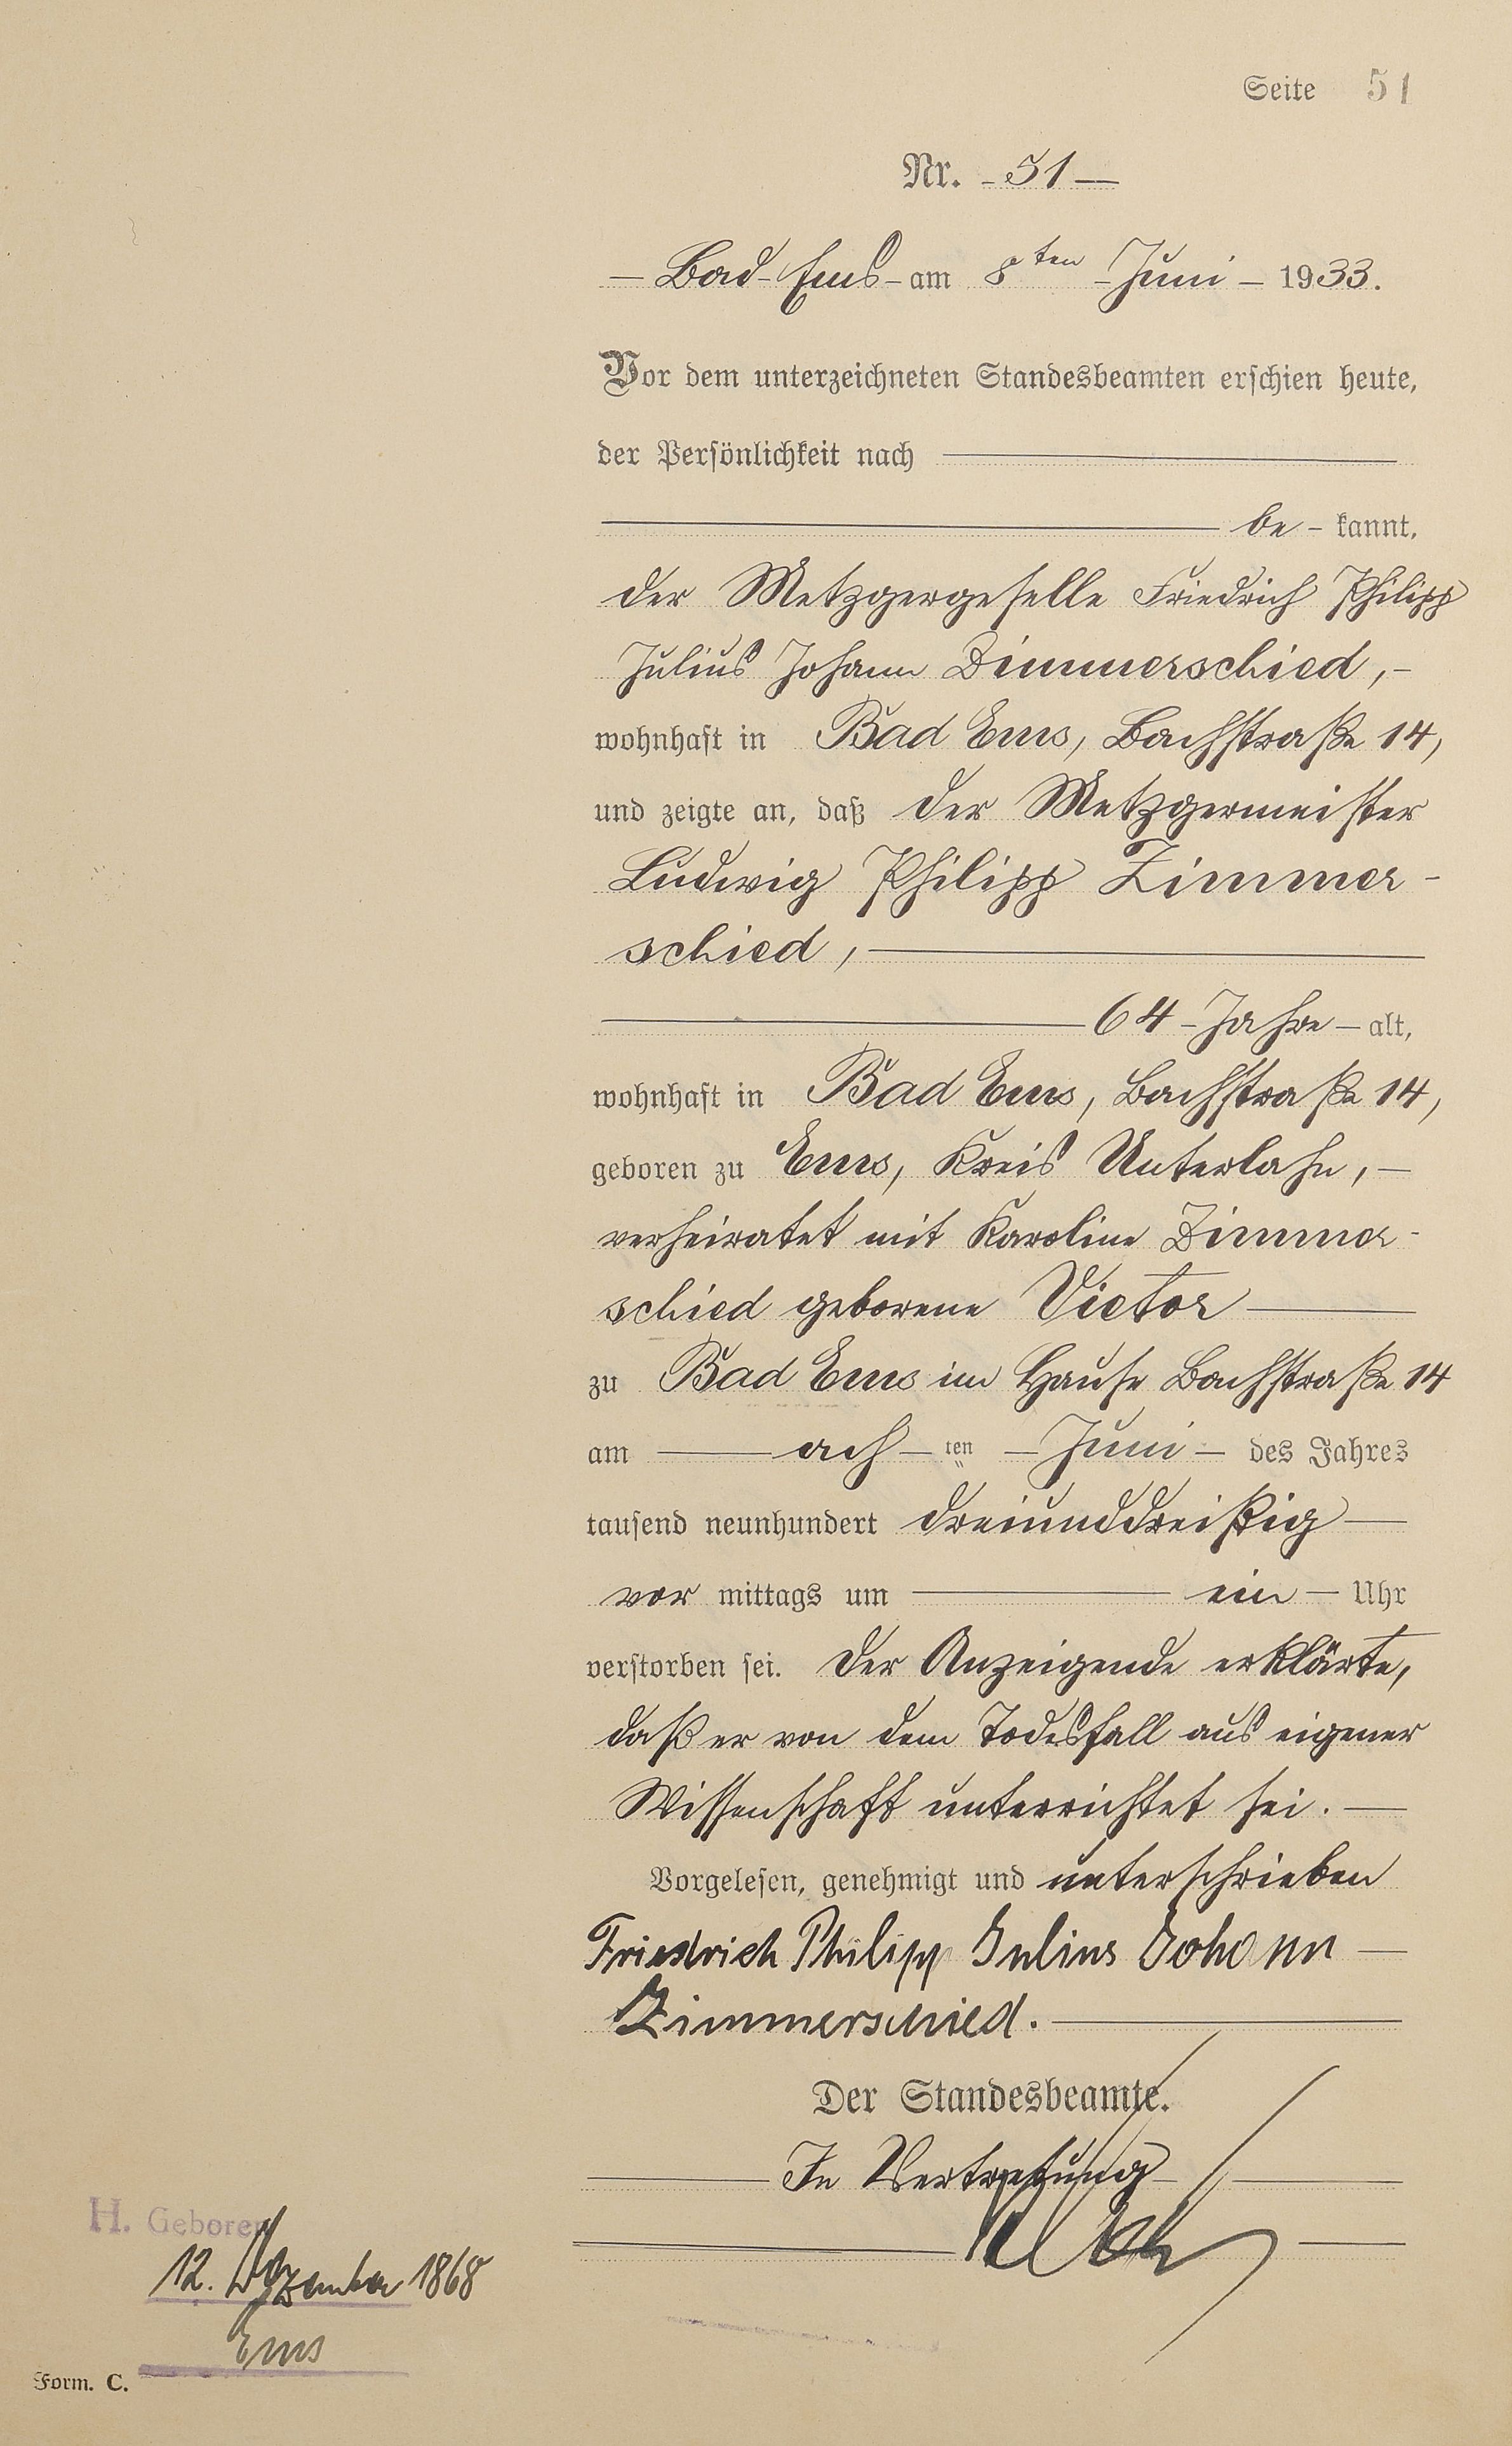 Seite 51
Nr. - 51 —
— Bad-Ems - am 8ten - Juni - 1933.
Vor dem unterzeichneten Standesbeamten erschien heute,
der Persönlichkeit nach
be - kannt,
der Metzgergeselle Friedrich Philipp
Julius Johann Zimmerschied, -
wohnhaft in Bad Ems, Bachstraße 14,
und zeigte an, daß der Metzgermeister
Ludwig Philipp Zimmer -
schied,
64 - Jahre - alt,
wohnhaft in Bad Ems, Bachstraße 14,
geboren zu Ems, Kreis Unterlahn, -
verheiratet mit Karoline Zimmer -
schied geborene Victor
zu Bad Ems im Hause Bachstraße 14
am — ach - ten - Juni - des Jahres
tausend neunhundert dreiunddreißig
vor mittags um — ein - Uhr
verstorben sei. Der Anzeigende erklärte,
daß er von dem Todesfall aus eigener
Wissenschaft unterrichtet sei.
Vorgelesen, genehmigt und unterschrieben
Friedrich Philipp Julius Johann
Zimmerschied.
Der Standesbeamte.
In Vertretung
H. Geboren
12. Dezember 1868
Ems
Form. C.